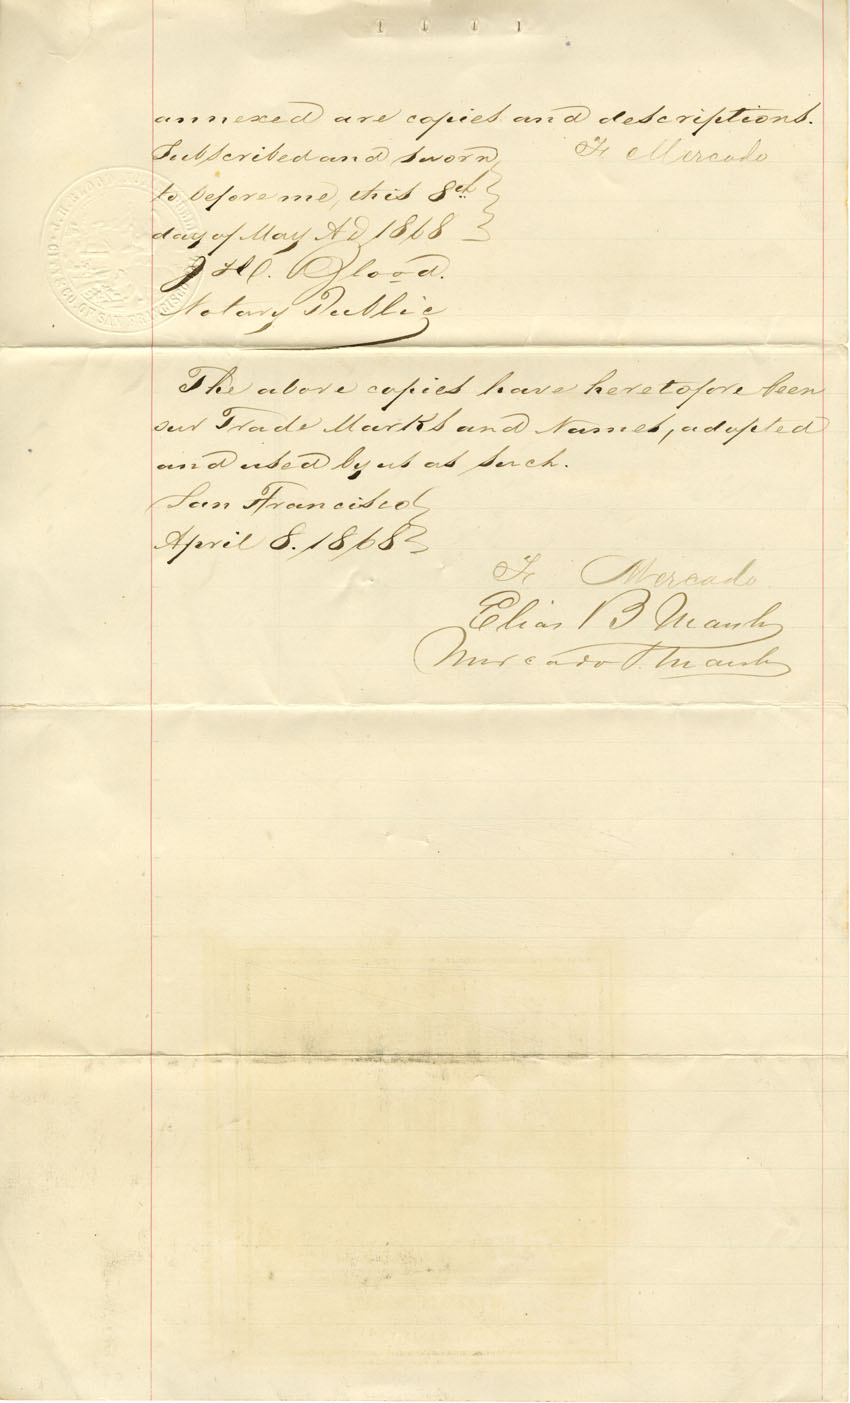 annexed are copies and descriptions.
Subscribed and sworn
F. Mercado
to before me, this 8th
day of May AD 1868
J H Blood.
Notary Public
The above copies have heretofore been
our Trade Marks and Names, adopted
and used by us as such.
San Francisco
April 8. 1868
F. Mercado
Elias B
Mercado